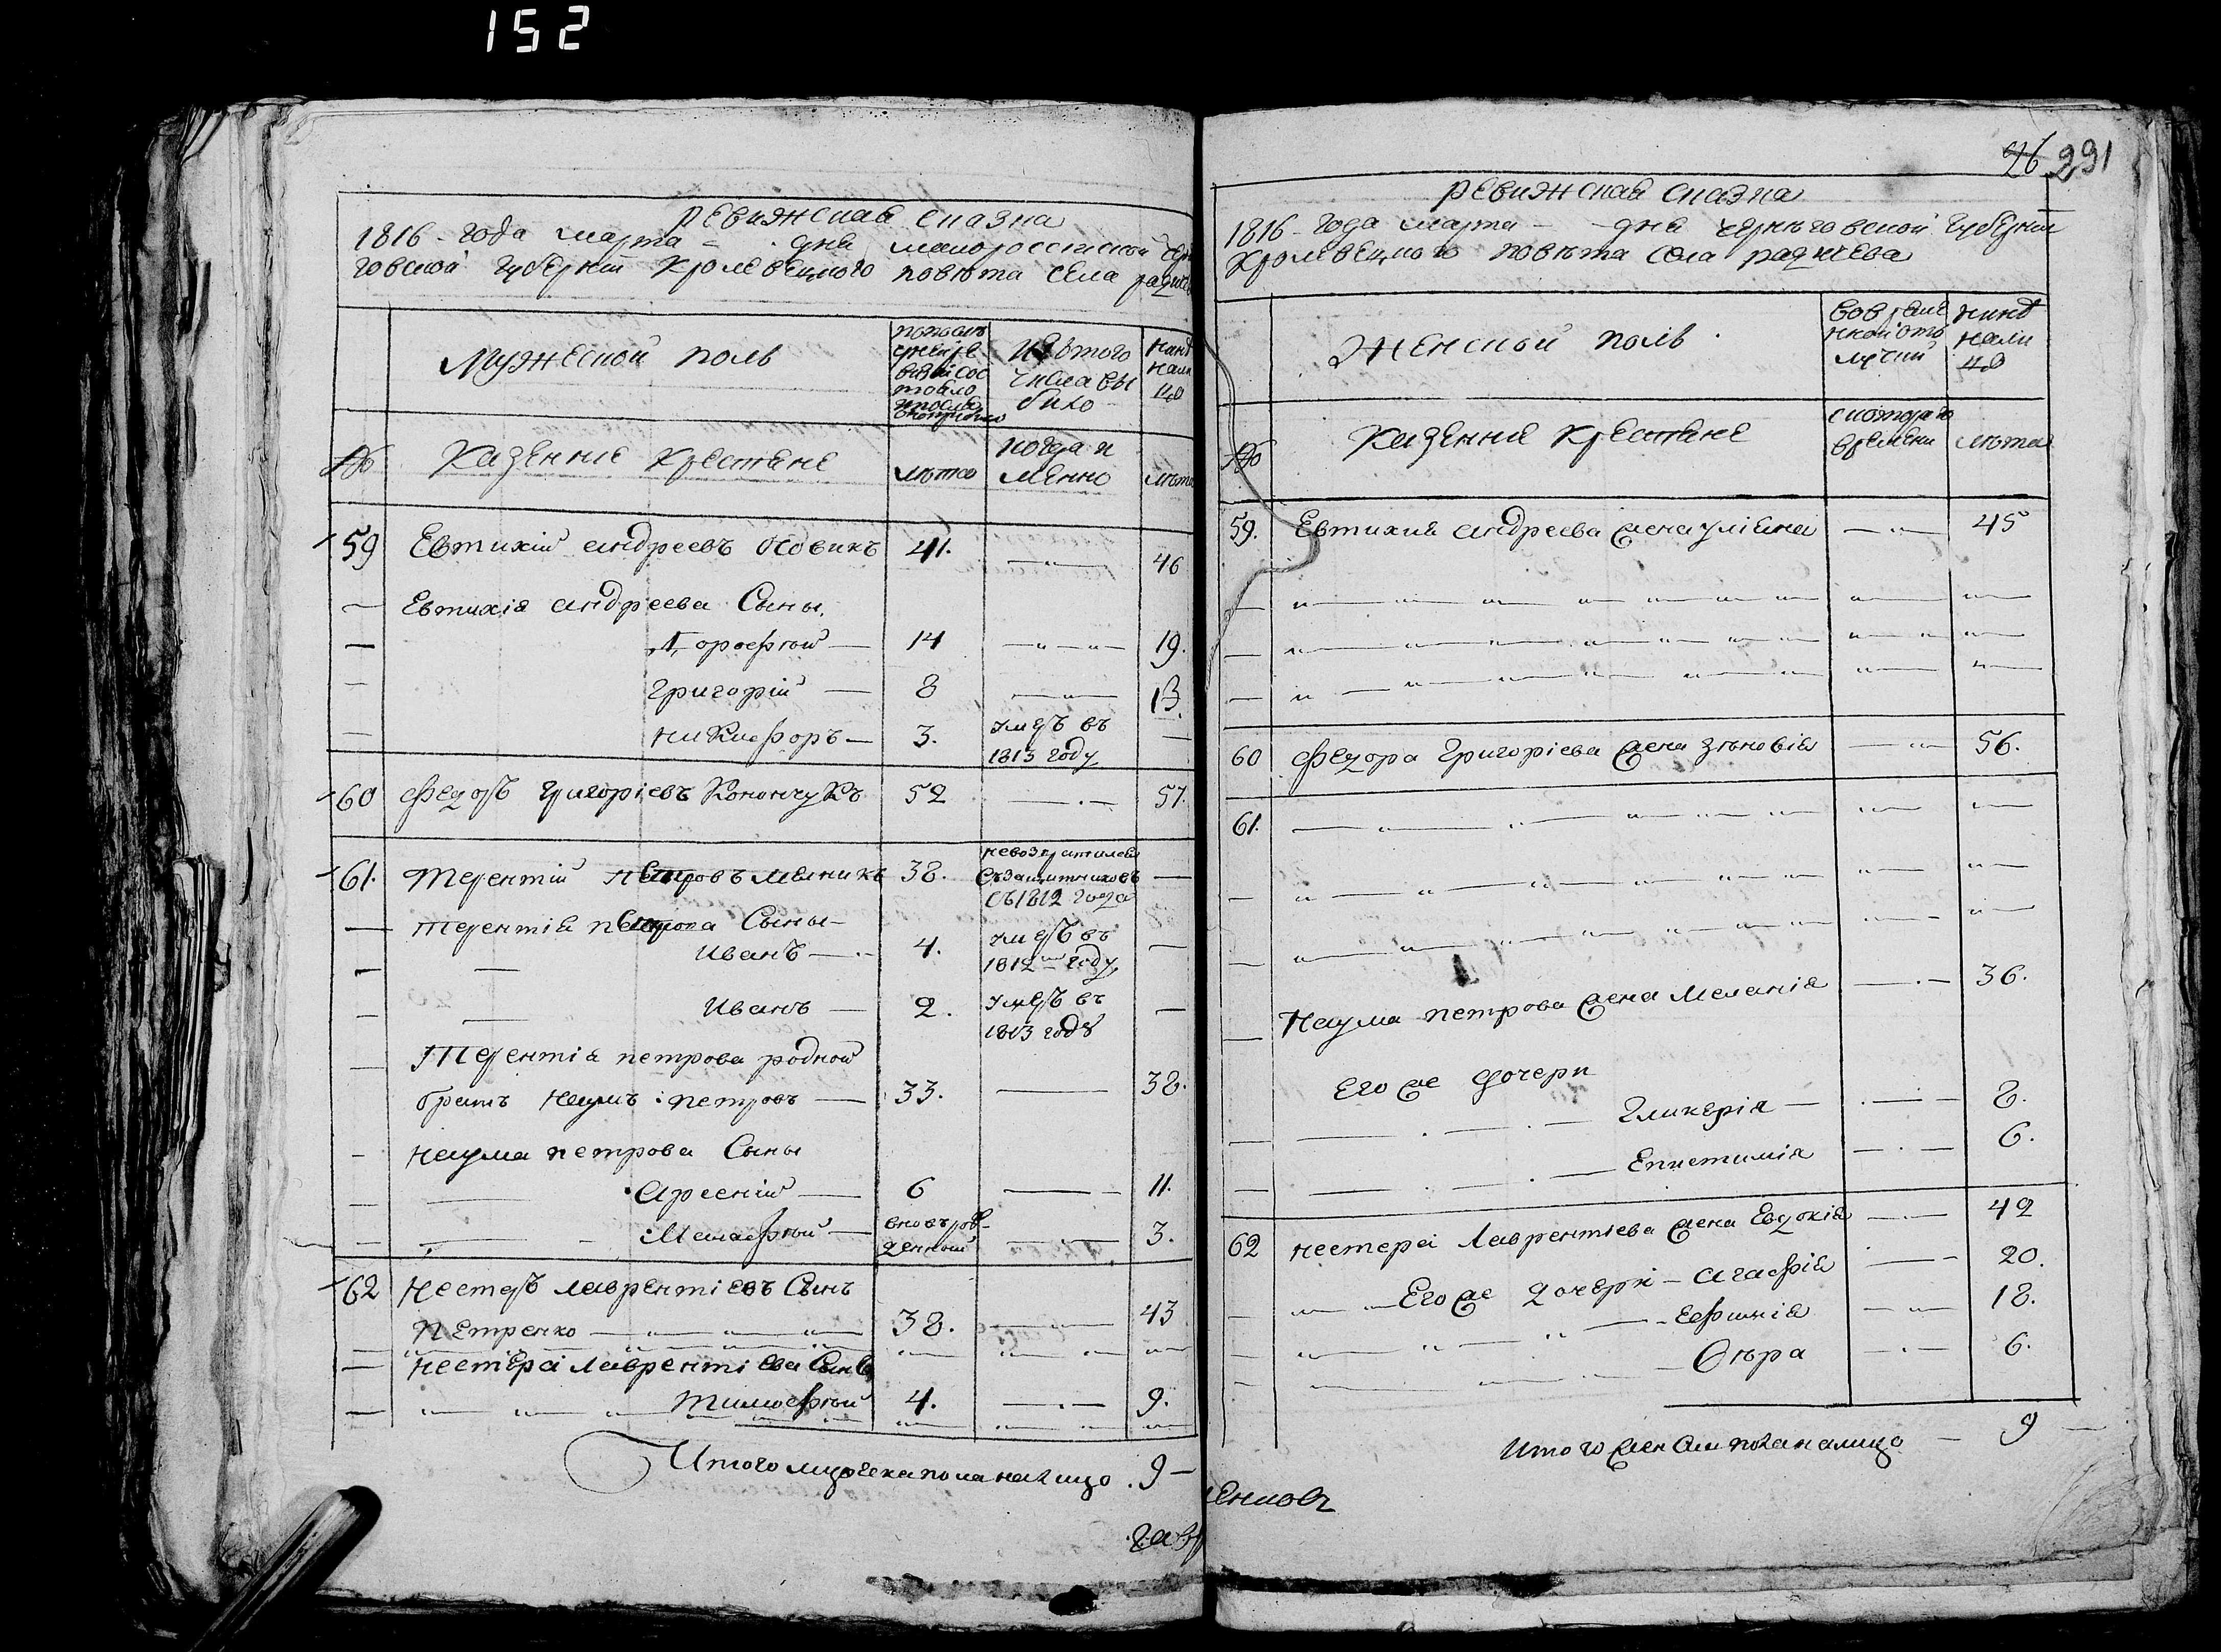 152
РЕвижская сказка
1816 - года марта - дня малоросеиской Чер
говской Губернiи Кролевецкого повѣта Села
Мужеской полъ
Изъ того числа вы было
нинѣ нали цо
№ Казенние Крестяне
лѣта
когда и менно
лѣта
59 Евтихiй андреевъ Новикъ 41. — 46
Евтихiя андреева Сыны.
Дорофѣй — 14 — 19.
Григорiй — 8 — 13.
никифоръ — 3. умеръ въ 1813 году —
60 Федоръ григорiевъ Конончукъ 52 — 57.
61. Терентiй петровъ мелникъ 38. невозвратился съ 1812 года —
терентiя петрова Сыны -
иванъ — 4. умеръ въ 1812 году —
иванъ — 2. умеръ въ 1813 годѣ —
Терентiя петрова родной
братъ наумъ петровъ — 33. — 38.
наума петрова Сыны
арсенiй — 6 — 11.
Малафѣй — вновь рожденный — 3.
62 нестеръ лаврентiевъ Сынъ
Петренко — 38. — 43
нестера лаврентiева Сынъ
тимофѣй 4. — 9.
Итого мужеска пола налицо . 9 -
26 291
РЕвижская сказка
1816 - года марта - дня чернѣговской Губернiи
Кролевецкого повѣта Села
Женской полъ
во временной отлучки
нинѣ нали цо
№ Казенние Крестяне
с которого времени
лѣта
59. Евтихия андреева жена улiяна — 45
60 Федора григорiева жена зѣновiя — 56.
61.
наума петрова жена меланiя — 36.
Его же дочери
Гликерiя — 8.
Епистимiя — 6.
62 нестера Лаврентiева жена Евдокiя — 42
Его же дочери - агафiя — 20.
Ефимiя — 18.
Вѣра — 6.
итого женска пола налицо — 9 —